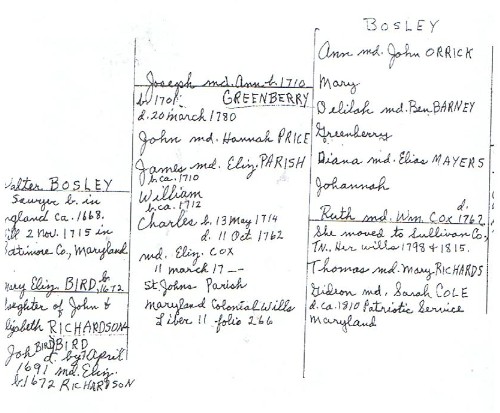 BOSLEY
Walter BOSLEY
Sawyer b. in
ngland ca. 1668.
ill 2 Nov. 1715 in
altimore Co, Maryland
ary Eliz. BIRD, b. 1672
aughter of John &
lizabeth RICHARDSON
Joh BIRD BIRD
d. by April
1691 md. Eliz.
b. 1672 RICHARDSON
Joseph md. Ann b. 1710
b. 1701 GREENBERRY
d. 20 march 1780
John md. Hannah PRICE
James md. Eliz. PARISH
b. ca. 1710
William
b. ca. 1712
Charles b. 13 May 1714
d. 11 Oct 1762
md. Eliz. COX
11 march 17--
St Johns Parish
Maryland Colonial Wills
Liber 11 - folio 266
Ann md. John ORRICK
Mary
Delilah md. Ben. BARNEY
Greenberry
Diana md. Elias MAYERS
Johannah
d.
Ruth md. Wm. COX 1762
She moved to Sullivan Co,
TN. Her wills 1793 & 1815.
Thomas md. Mary RICHARDS
Gideon md. Sarah COLE
d. ca. 1810 Patriotic Service
Maryland